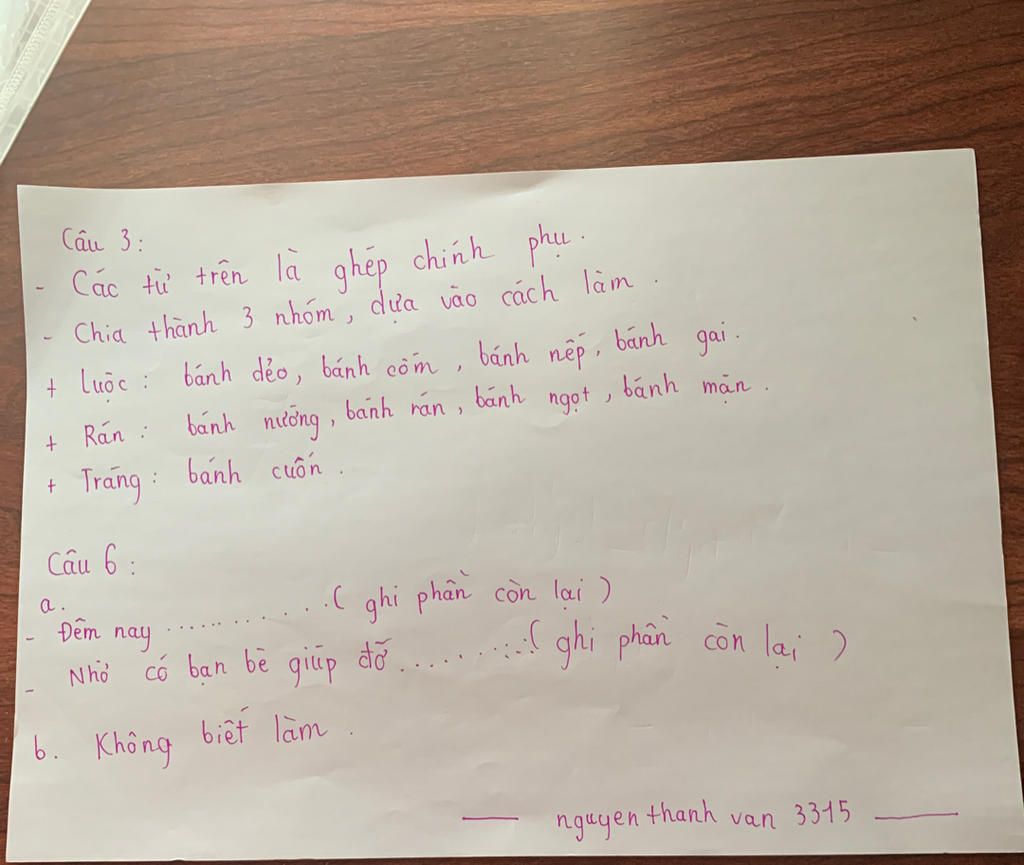 Câu 3:
- Các từ trên là ghép chính phụ.
- Chia thành 3 nhóm, dựa vào cách làm.
+ Luộc: bánh dẻo, bánh cốm, bánh nếp, bánh gai.
+ Rán: bánh nướng, bánh rán, bánh ngọt, bánh mặn.
+ Tráng: bánh cuốn.
Câu 6:
a.
- Đêm nay ............( ghi phần còn lại )
- Nhờ có bạn bè giúp đỡ..........( ghi phần còn lại )
b. Không biết làm.
— nguyenthanh van 3315 —